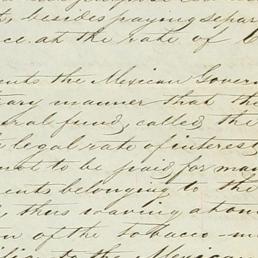 besides paying separ
ce. at the rate of
ents the Mexican Govern
tary manner that the
eral fund, called the
legal rate of interest
not to be paid for man
ents belonging to the
thus leaving at one
on of the tobacco-m
to the Mexican